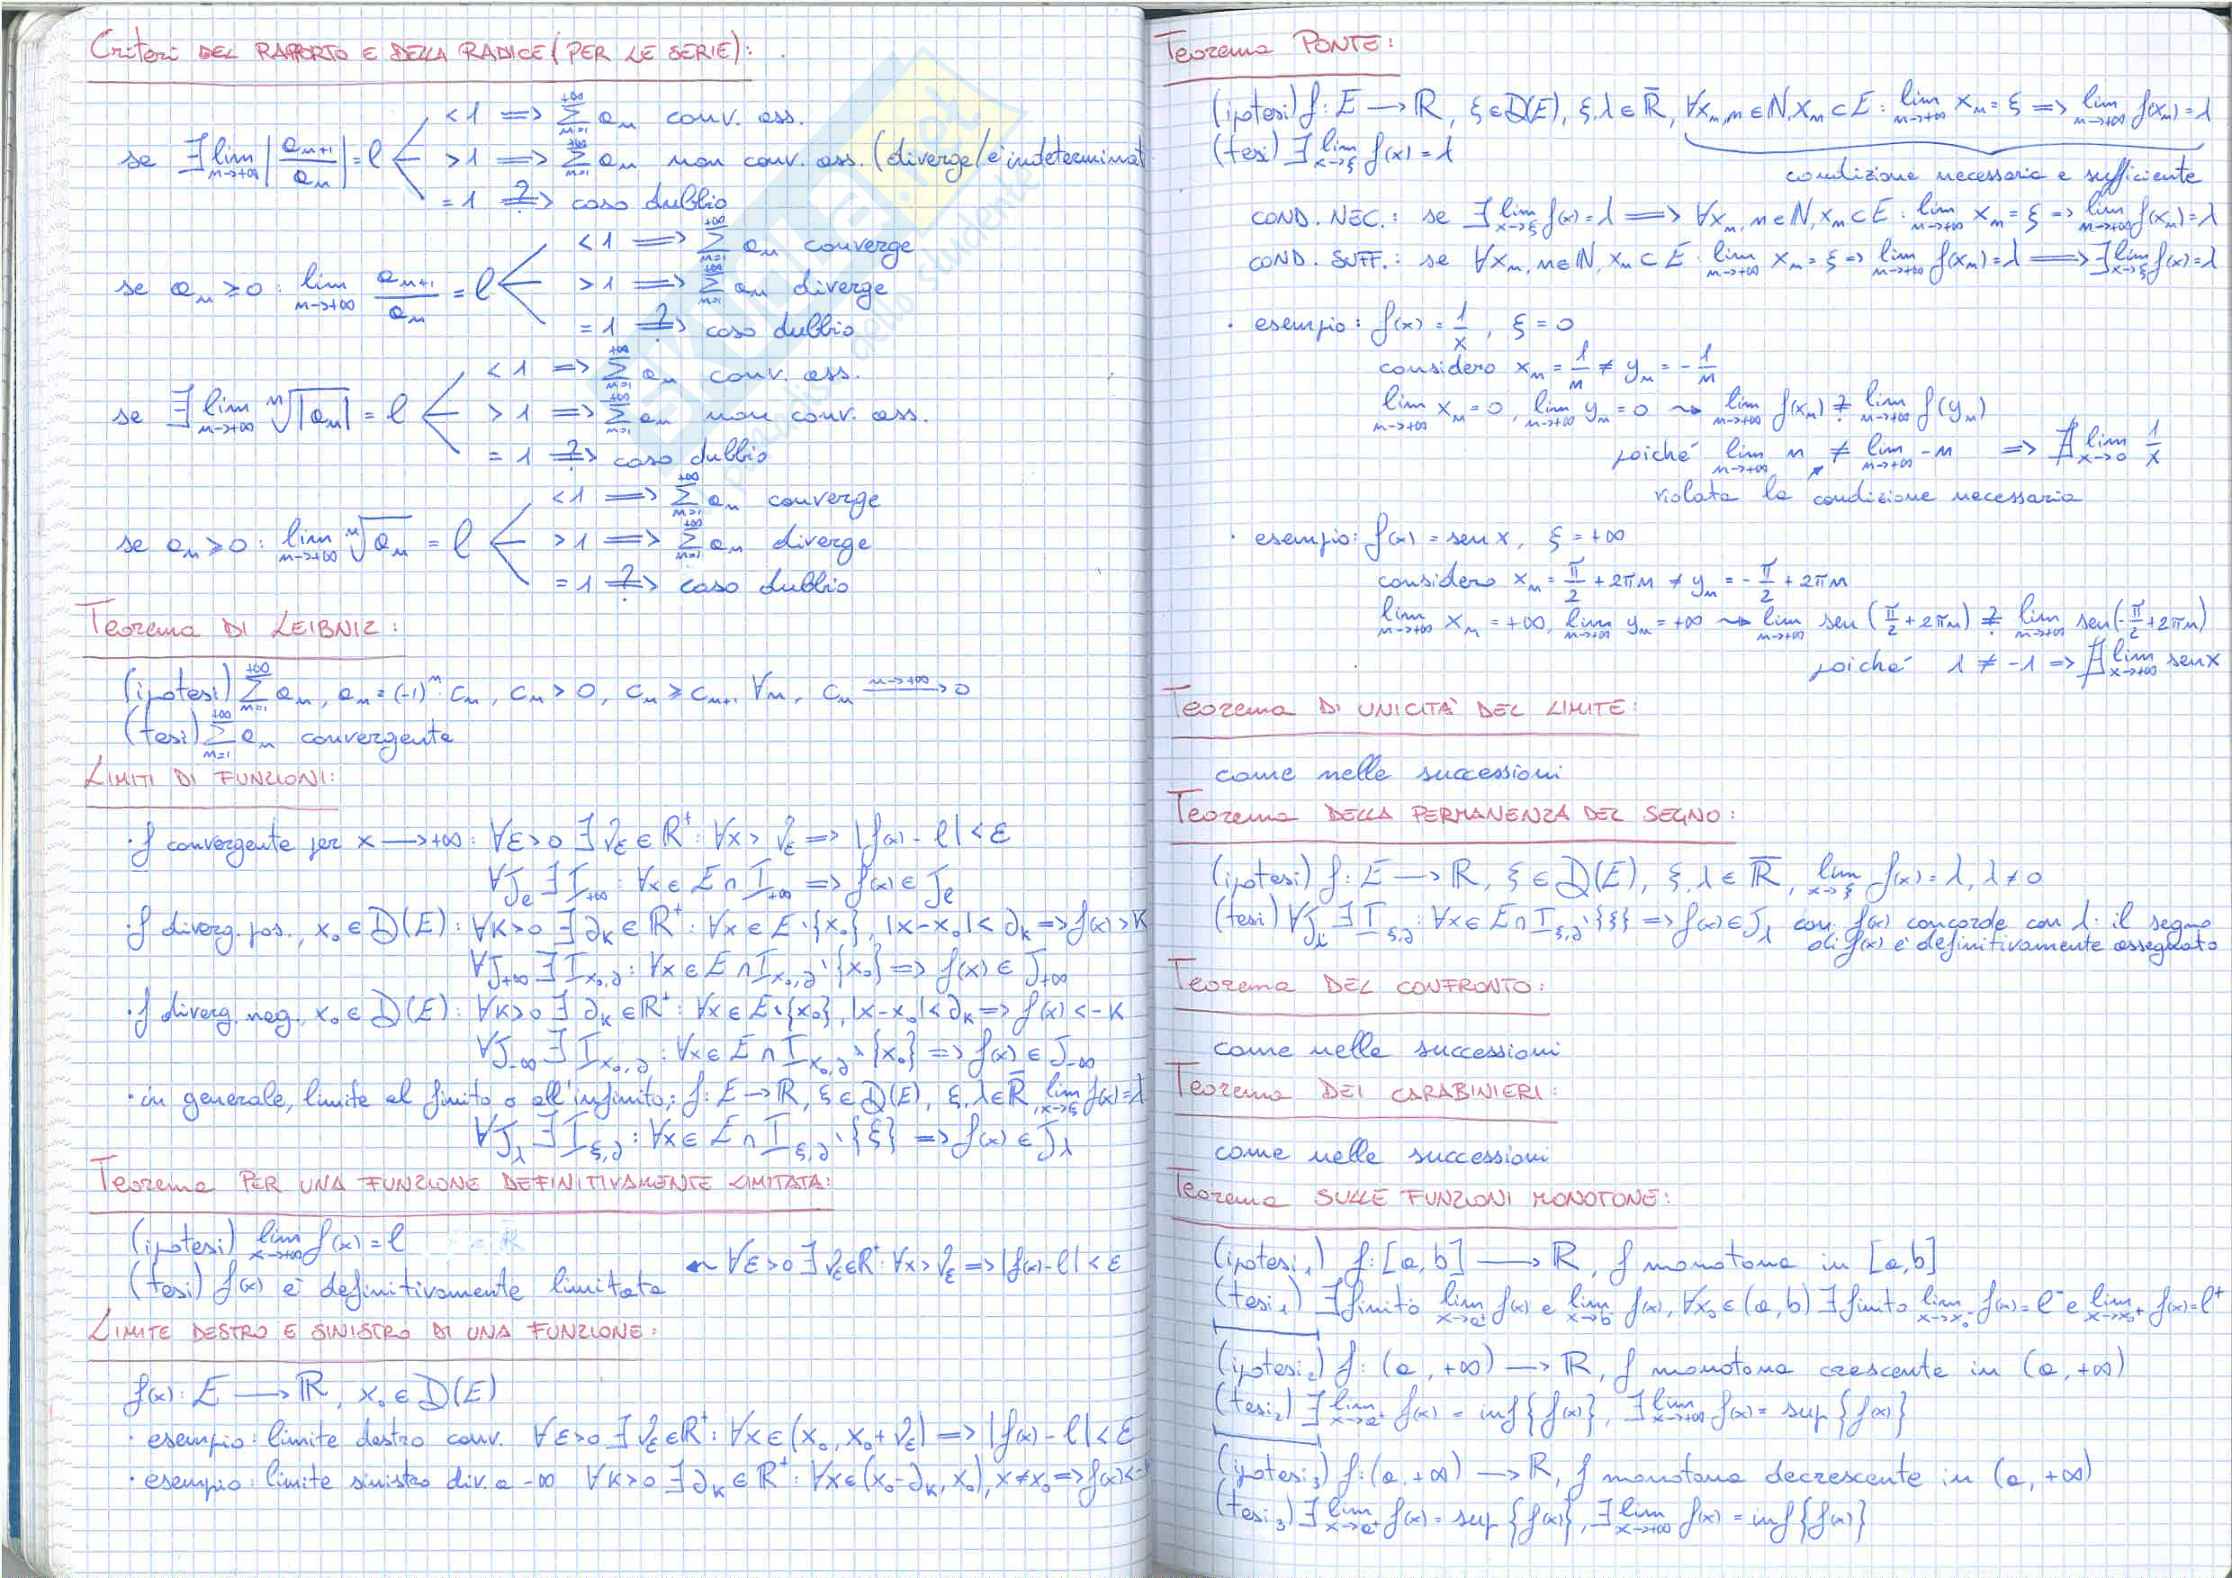 Criteri DEL RAPPORTO E DELLA RADICE (PER LE SERIE):
se ∃ lim n→+∞ |a_{n+1}/a_n| = l
< 1 => Σ_{n=1}^{+∞} a_n conv. ass.
> 1 => Σ_{n=1}^{+∞} a_n non conv. ass. (diverge/è indeterminat
= 1 ?=> caso dubbio
se a_n ≥ 0 : lim n→+∞ a_{n+1}/a_n = l
< 1 => Σ_{n=1}^{+∞} a_n converge
> 1 => Σ_{n=1}^{+∞} a_n diverge
= 1 ?=> caso dubbio
se ∃ lim n→+∞ ⁿ√|a_n| = l
< 1 => Σ_{n=1}^{+∞} a_n conv. ass.
> 1 => Σ_{n=1}^{+∞} a_n non conv. ass.
= 1 ?=> caso dubbio
se a_n ≥ 0 : lim n→+∞ ⁿ√a_n = l
< 1 => Σ_{n=1}^{+∞} a_n converge
> 1 => Σ_{n=1}^{+∞} a_n diverge
= 1 ?=> caso dubbio
Teorema DI LEIBNIZ :
(ipotesi) Σ_{n=1}^{+∞} a_n, a_n = (-1)^n · c_n, c_n > 0, c_n ≥ c_{n+1} ∀n, c_n n→+∞ → 0
(tesi) Σ_{n=1}^{+∞} a_n convergente
LIMITI DI FUNZIONI :
· f convergente per x → +∞ : ∀ε>0 ∃ ν_ε ∈ R⁺ : ∀x > ν_ε => |f(x) - l| < ε
∀J_l ∃ I_{+∞} : ∀x ∈ E ∩ I_{+∞} => f(x) ∈ J_l
· f diverg. pos., x₀ ∈ D(E) : ∀K>0 ∃ ∂_K ∈ R⁺ : ∀x ∈ E \ {x₀}, |x-x₀| < ∂_K => f(x) > K
∀J_{+∞} ∃ I_{x₀,∂} : ∀x ∈ E ∩ I_{x₀,∂} \ {x₀} => f(x) ∈ J_{+∞}
· f diverg. neg., x₀ ∈ D(E) : ∀K>0 ∃ ∂_K ∈ R⁺ : ∀x ∈ E \ {x₀}, |x-x₀| < ∂_K => f(x) < -K
∀J_{-∞} ∃ I_{x₀,∂} : ∀x ∈ E ∩ I_{x₀,∂} \ {x₀} => f(x) ∈ J_{-∞}
· in generale, limite al finito o all'infinito; f: E → R, ξ ∈ D(E), ξ, λ ∈ R̄, lim x→ξ f(x) = λ
∀J_λ ∃ I_{ξ,∂} : ∀x ∈ E ∩ I_{ξ,∂} \ {ξ} => f(x) ∈ J_λ
Teorema PER UNA FUNZIONE DEFINITIVAMENTE LIMITATA:
(ipotesi) lim x→+∞ f(x) = l
(tesi) f(x) è definitivamente limitata ← ∀ε>0 ∃ ν_ε ∈ R⁺ : ∀x > ν_ε => |f(x)-l| < ε
LIMITE DESTRO E SINISTRO DI UNA FUNZIONE :
f(x) : E → R, x₀ ∈ D(E)
· esempio : limite destro conv. ∀ε>0 ∃ ν_ε ∈ R⁺ : ∀x ∈ (x₀, x₀+ν_ε) => |f(x) - l| < ε
· esempio : limite sinistro div. a -∞ ∀K>0 ∃ ∂_K ∈ R⁺ : ∀x ∈ (x₀-∂_K, x₀), x≠x₀ => f(x) < -
Teorema PONTE :
(ipotesi) f : E → R, ξ ∈ D(E), ξ, λ ∈ R̄, ∀x_n, n ∈ N, x_n ⊂ E : lim n→+∞ x_n = ξ => lim n→+∞ f(x_n) = λ
(tesi) ∃ lim x→ξ f(x) = λ
condizione necessaria e sufficiente
COND. NEC. : se ∃ lim x→ξ f(x) = λ => ∀x_n, n ∈ N, x_n ⊂ E : lim n→+∞ x_n = ξ => lim n→+∞ f(x_n) = λ
COND. SUFF. : se ∀x_n, n ∈ N, x_n ⊂ E : lim n→+∞ x_n = ξ => lim n→+∞ f(x_n) = λ => ∃ lim x→ξ f(x) = λ
· esempio : f(x) = 1/x, ξ = 0
considero x_n = 1/n ≠ y_n = -1/n
lim n→+∞ x_n = 0, lim n→+∞ y_n = 0 ⇝ lim n→+∞ f(x_n) ≠? lim n→+∞ f(y_n)
poiché lim n→+∞ n ≠ lim n→+∞ -n => ∄ lim x→0 1/x
violata la condizione necessaria
· esempio : f(x) = sen x, ξ = +∞
considero x_n = π/2 + 2πn ≠ y_n = -π/2 + 2πn
lim n→+∞ x_n = +∞, lim n→+∞ y_n = +∞ ⇝ lim n→+∞ sen(π/2 + 2πn) ≠? lim n→+∞ sen(-π/2 + 2πn)
poiché 1 ≠ -1 => ∄ lim x→+∞ sen x
Teorema DI UNICITA' DEL LIMITE :
come nelle successioni
Teorema DELLA PERMANENZA DEL SEGNO :
(ipotesi) f : E → R, ξ ∈ D(E), ξ, λ ∈ R̄, lim x→ξ f(x) = λ, λ ≠ 0
(tesi) ∀J_λ ∃ I_{ξ,∂} : ∀x ∈ E ∩ I_{ξ,∂} \ {ξ} => f(x) ∈ J_λ con f(x) concorde con λ: il segno
di f(x) è definitivamente assegnato
Teorema DEL CONFRONTO :
come nelle successioni
Teorema DEI CARABINIERI :
come nelle successioni
Teorema SULLE FUNZIONI MONOTONE :
(ipotesi₁) f : [a, b] → R, f monotona in [a, b]
(tesi₁) ∃ finito lim x→a⁺ f(x) e lim x→b⁻ f(x), ∀x₀ ∈ (a, b) ∃ finito lim x→x₀⁻ f(x) = l⁻ e lim x→x₀⁺ f(x) = l⁺
(ipotesi₂) f : (a, +∞) → R, f monotona crescente in (a, +∞)
(tesi₂) ∃ lim x→a⁺ f(x) = inf {f(x)}, ∃ lim x→+∞ f(x) = sup {f(x)}
(ipotesi₃) f : (a, +∞) → R, f monotona decrescente in (a, +∞)
(tesi₃) ∃ lim x→a⁺ f(x) = sup {f(x)}, ∃ lim x→+∞ f(x) = inf {f(x)}